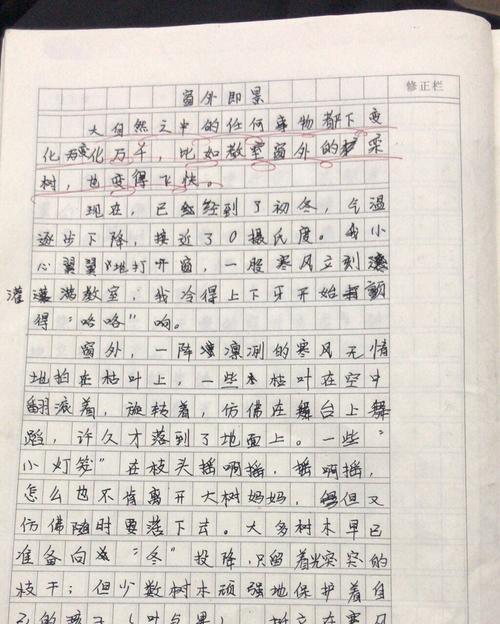 修正栏
窗外即景
大自然之中的任何事物都下变
化万千，比如教室窗外的栾
树，也变得飞快。
现在，已经到了初冬，气温
逐步下降，接近了0摄氏度。我小
心翼翼地打开窗，一股寒风立刻
灌满教室，我冷得上下牙开始颤
得“咯咯”响。
窗外，一阵凛冽的寒风无情
地拍在枯叶上，一些枯叶在空中
翻滚着，旋转着，仿佛在舞台上舞
蹈，许久才落到了地面上。一些“
小灯笼”在枝头摇啊摇，摇啊摇，
怎么也不肯离开大树妈妈，但又
仿佛随时要落下去。大多树木早已
准备向“冬”投降，只留着光突突的
枝干；但少数树木顽强地保护着自
己的孩子（叶与果），挺立在寒风